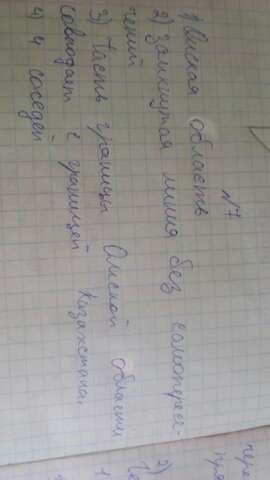 №7
1) Омская область
2) Замкнутая линия без самопересе-
чений
3) Часть границы Омской области
совподает с границей Казахстана.
4) 4 соседей
2)
1